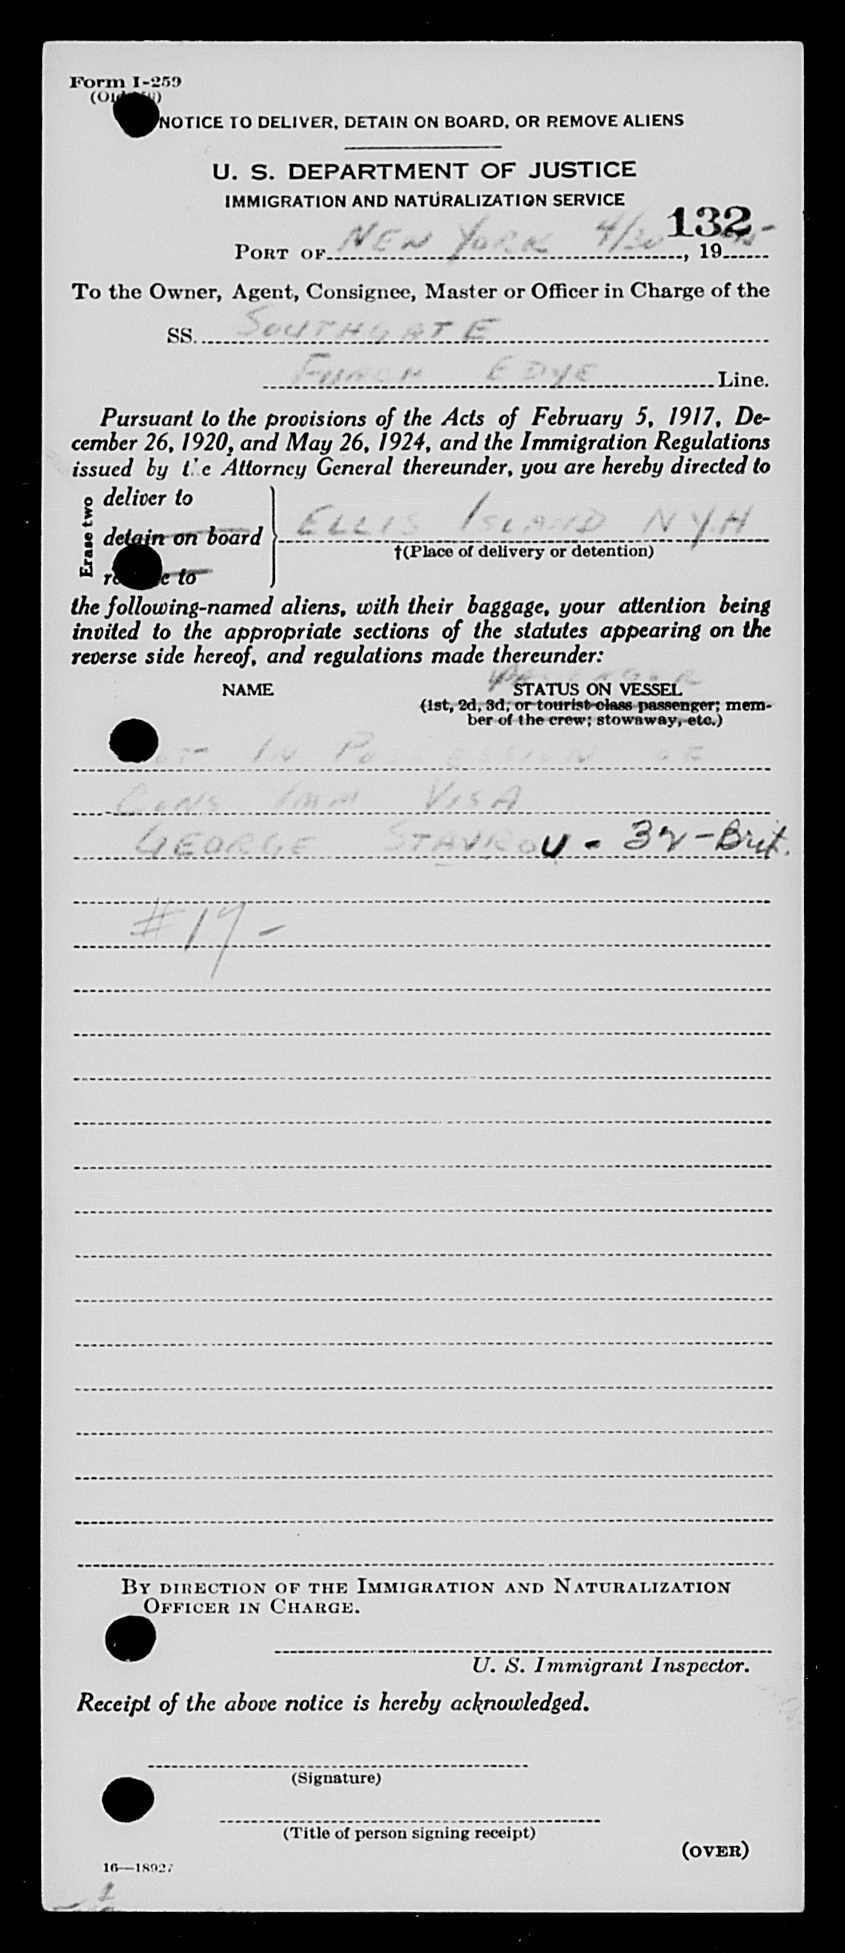 Form I-259
NOTICE TO DELIVER, DETAIN ON BOARD, OR REMOVE ALIENS
U. S. DEPARTMENT OF JUSTICE
IMMIGRATION AND NATURALIZATION SERVICE
132
PORT OF NEW YORK 4/30, 19
To the Owner, Agent, Consignee, Master or Officer in Charge of the
SS. SOUTHGATE
EDYE Line.
Pursuant to the provisions of the Acts of February 5, 1917, De-
cember 26, 1920, and May 26, 1924, and the Immigration Regulations
issued by the Attorney General thereunder, you are hereby directed to
Erase two
deliver to
detain on board
to
ELLIS ISLAND NYH
†(Place of delivery or detention)
the following-named aliens, with their baggage, your attention being
invited to the appropriate sections of the statutes appearing on the
reverse side hereof, and regulations made thereunder:
PASSENGER
NAME STATUS ON VESSEL
(1st, 2d, 3d, or tourist class passenger; mem-
ber of the crew; stowaway, etc.)
IN POSSESSION OF
CONS IMM VISA
GEORGE STAVROU - 32 - Brit.
#17-
BY DIRECTION OF THE IMMIGRATION AND NATURALIZATION
OFFICER IN CHARGE.
U. S. Immigrant Inspector.
Receipt of the above notice is hereby acknowledged.
(Signature)
(Title of person signing receipt)
(OVER)
16—18927